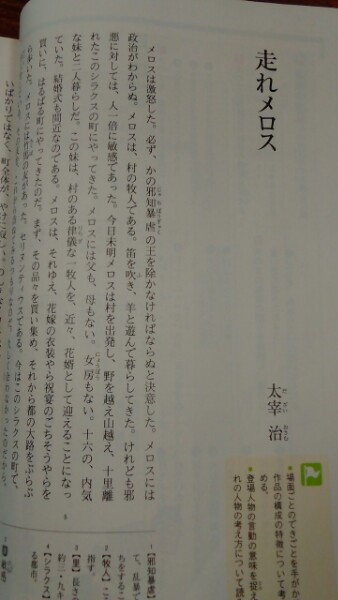 走れメロス
太宰 治
だ ざい おさむ
・場面ごとのできごとを手がか
作品の構成の特徴について考
める。
・登場人物の言動の意味を捉え
れの人物の考え方について読
メロスは激怒した。必ず、かの邪知暴虐の王を除かなければならぬと決意した。メロスには
じゃちぼうぎゃく
政治がわからぬ。メロスは、村の牧人である。笛を吹き、羊と遊んで暮らしてきた。けれども邪
悪に対しては、人一倍に敏感であった。今日未明メロスは村を出発し、野を越え山越え、十里離
れたこのシラクスの町にやってきた。メロスには父も、母もない。女房もない。十六の、内気
な妹と二人暮らしだ。この妹は、村のある律儀な一牧人を、近々、花婿として迎えることになっ
ていた。結婚式も間近なのである。メロスは、それゆえ、花嫁の衣装やら祝宴のごちそうやらを
買いに、はるばる町にやってきたのだ。まず、その品々を買い集め、それから都の大路をぶらぶ
ら歩いた。メロスには竹馬の友があった。セリヌンティウスである。今はこのシラクスの町で、
いばかりではなく、町全体が、やけに寂しい。
5
1【邪知暴虐】
て、乱暴で
ちをするこ
2【牧人】
3【里】長さ
約三・九キ
指す。
4【シラクス】
る都市。